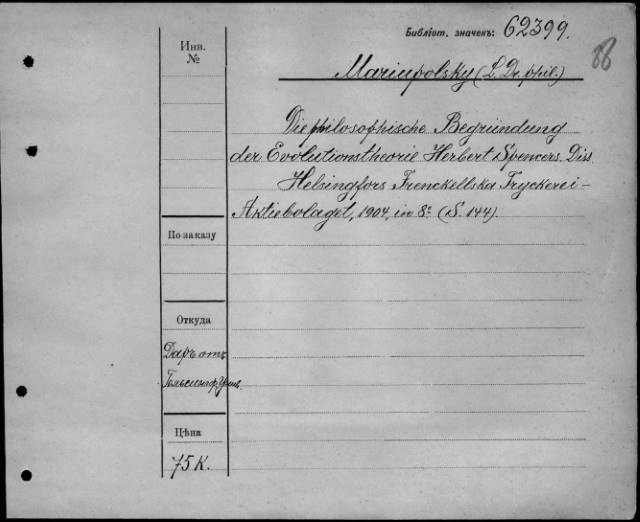 Библіот. значекъ: 62399.
88
Инв.
№
Mariupolsky (L. Dr. phil.)
Die philosophische Begründung
der Evolutionstheorie Herbert Spencers. Diss.
Helsingfors Frenckellska Tryckeri-
Aktiebolaget, 1904, in 8º (S. 144).
По заказу
Откуда
Даръ отъ
Гельсингф. Унив.
Цѣна
75 к.